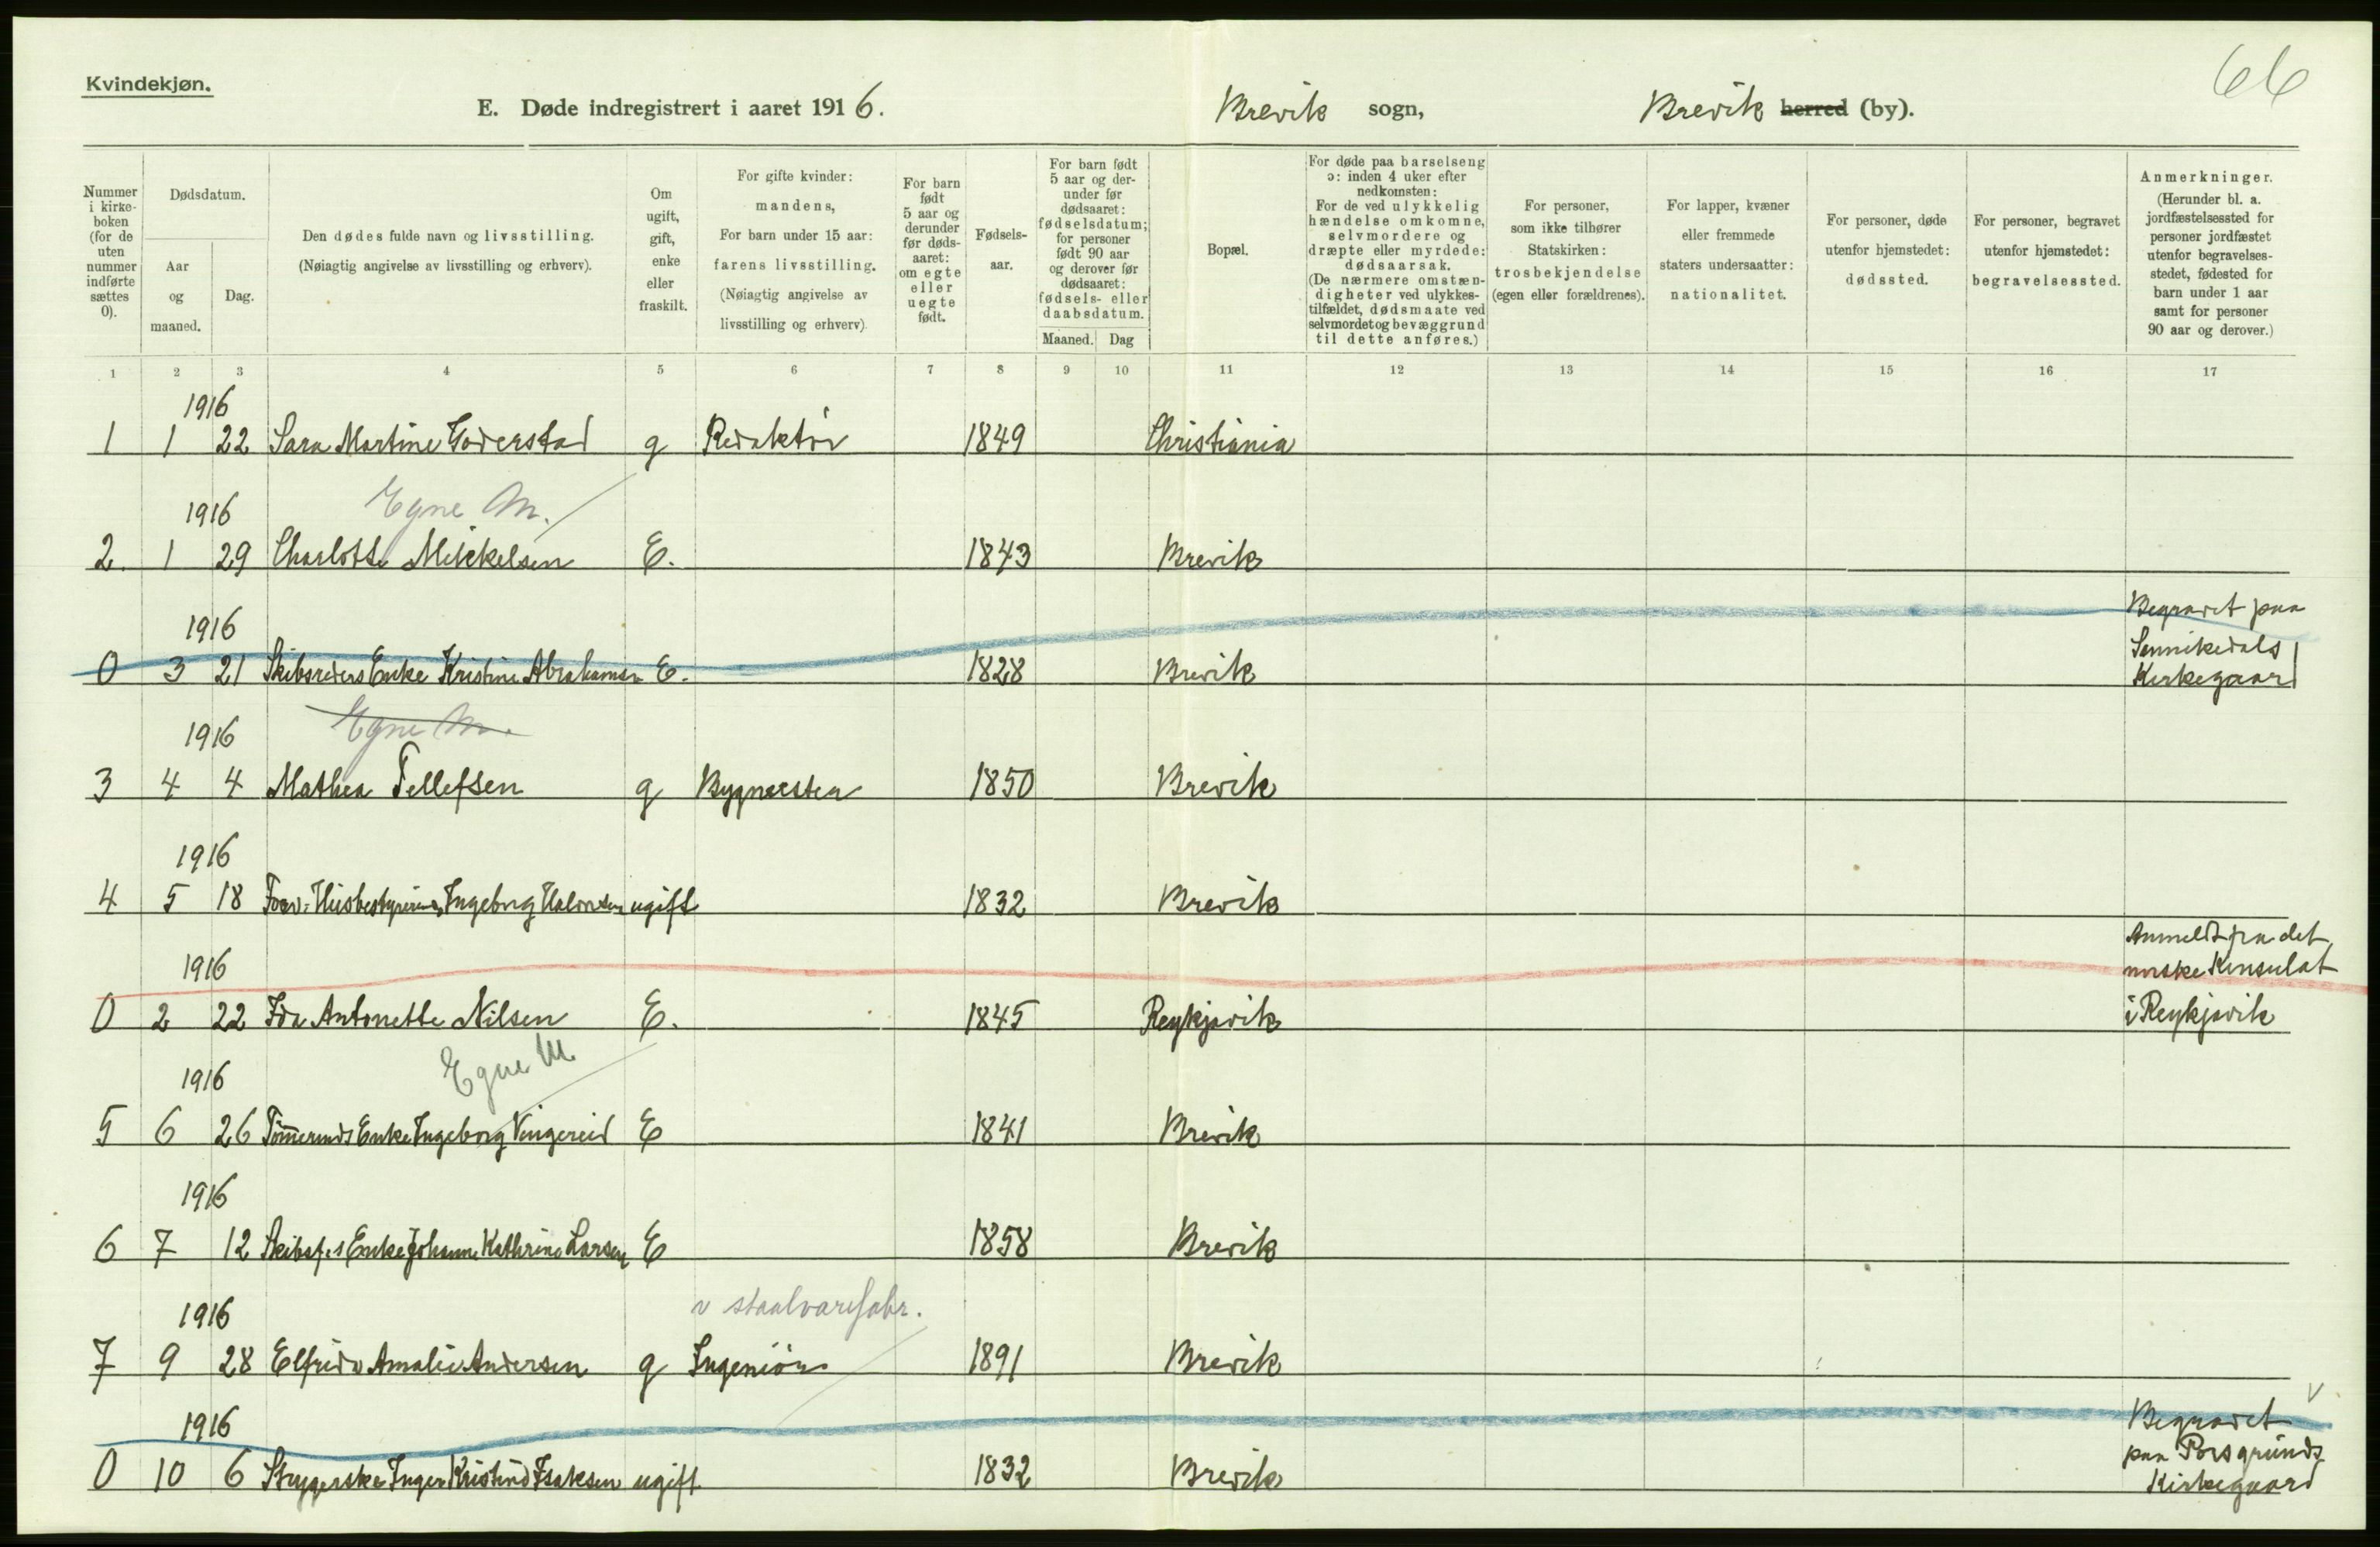 Kvindekjøn.
66
E. Døde indregistrert i aaret 1916.
Brevik sogn,
Brevik herred (by).
Nummer i kirke-boken (for de uten nummer indførte sættes 0).
Dødsdatum.
Aar og maaned.
Dag.
Den dødes fulde navn og livsstilling.
(Nøiagtig angivelse av livsstilling og erhverv).
Om ugift, gift, enke eller fraskilt.
For gifte kvinder: mandens,
For barn under 15 aar: farens livsstilling.
(Nøiagtig angivelse av livsstilling og erhverv).
For barn født 5 aar og derunder før døds-aaret: om egte eller uegte født.
Fødsels-aar.
For barn født 5 aar og der-under før dødsaaret: fødselsdatum; for personer født 90 aar og derover før dødsaaret: fødsels- eller daabsdatum.
Maaned. Dag
Bopæl.
For døde paa barselseng ɔ: inden 4 uker efter nedkomsten:
For de ved ulykkelig hændelse omkomne, selvmordere og dræpte eller myrdede: dødsaarsak.
(De nærmere omstæn-digheter ved ulykkes-tilfældet, dødsmaate ved selvmordet og bevæggrund til dette anføres.)
For personer, som ikke tilhører Statskirken: trosbekjendelse (egen eller forældrenes).
For lapper, kvæner eller fremmede staters undersaatter: nationalitet.
For personer, døde utenfor hjemstedet: dødssted.
For personer, begravet utenfor hjemstedet: begravelsessted.
Anmerkninger.
(Herunder bl. a. jordfæstelsessted for personer jordfæstet utenfor begravelses-stedet, fødested for barn under 1 aar samt for personer 90 aar og derover.)
1 2 3 4 5 6 7 8 9 10 11 12 13 14 15 16 17
1916
1 1 22 Sara Martine Goderstad g Redaktør 1849 Christiania
Egne M.
1916
2. 1 29 Charlotte Mikkelsen E. 1843 Brevik
1916
Begravet paa
Sannikedals
0 3 21 Skibsreders Enke Kristine Abrahamsen E. 1828 Brevik Kirkegaard
Egne M.
1916
3 4 4 Mathea Tellefsen g Bygmester 1850 Brevik
1916
4 5 18 Forv. Husbestyrerinde Ingeborg Halvorsen ugift 1832 Brevik
Anmeldt fra det
1916
norske Konsulat
0 2 22 Ida Antonette Nilsen E. 1845 Reykjavik i Reykjavik
Egne M
1916
5 6 26 Tømmermds Enke Ingeborg Vingereid E 1841 Brevik
1916
6 7 12 Skibsf.s Enke Johanne Kathrine Larsen E 1858 Brevik
v staalvarefabr.
1916
7 9 28 Elfrida Amalie Andersen g Ingeniør 1891 Brevik
1916
Begravet
paa Porsgrunds
0 10 6 Strygerske Inger Kristine Isaksen ugift 1832 Brevik Kirkegaard